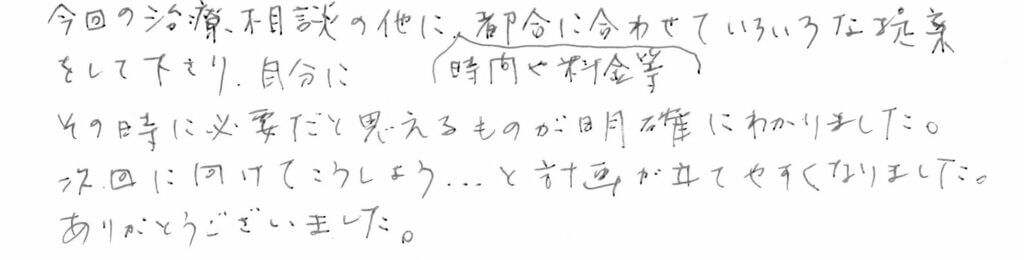 今回の治療、相談の他に、都合に合わせていろいろな提案
をして下さり、自分に
(時間や料金等)
その時に必要だと思えるものが明確にわかりました。
次回に向けてこうしよう...と計画が立てやすくなりました。
ありがとうございました。